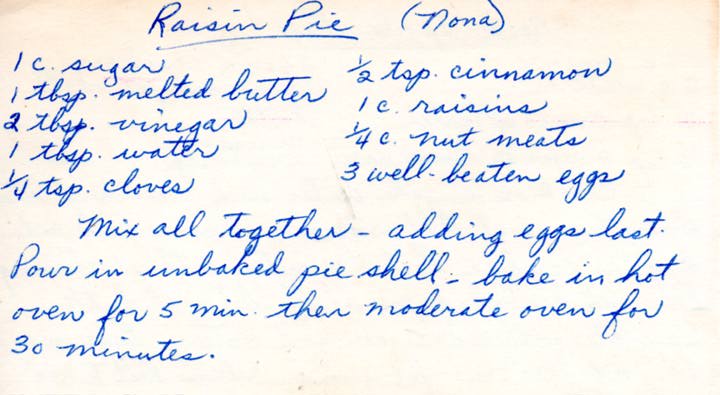 Raisin Pie (Nona)
1 c. sugar
1 tbsp. melted butter
2 tbsp. vinegar
1 tbsp. water
1/4 tsp. cloves
1/2 tsp. cinnamon
1 c. raisins
1/4 c. nut meats
3 well-beaten eggs
Mix all together - adding eggs last.
Pour in unbaked pie shell - bake in hot
oven for 5 min. then moderate oven for
30 minutes.